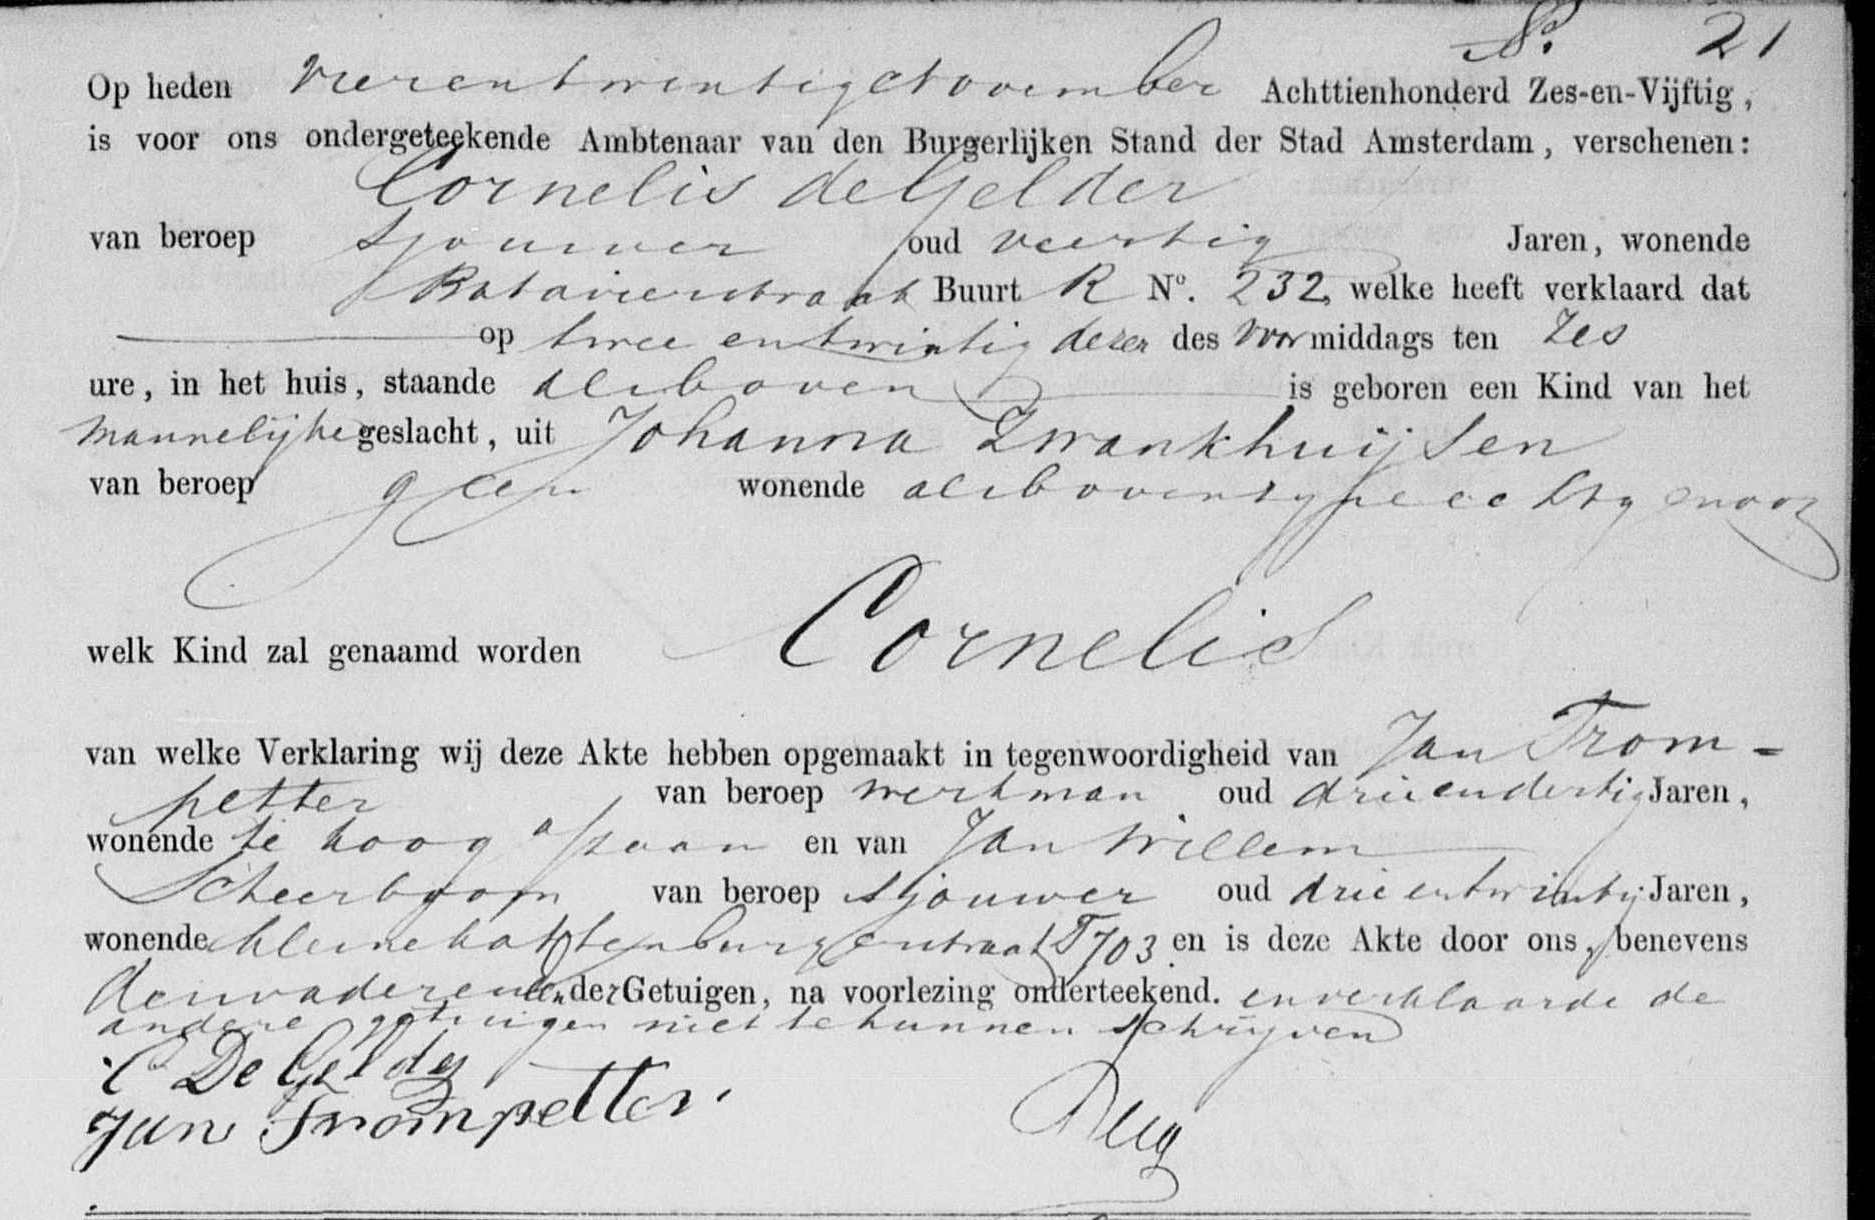 21
Op heden vierentwintig November Achttienhonderd Zes-en-Vijftig,
is voor ons ondergeteekende Ambtenaar van den Burgerlijken Stand der Stad Amsterdam, verschenen:
Cornelis de Gelder
van beroep Sjouwer oud veertig Jaren, wonende
Batavierstraat Buurt R No. 232, welke heeft verklaard dat
op twee entwintig dezer des Voormiddags ten Zes
ure, in het huis, staande alsboven is geboren een Kind van het
Mannelijke geslacht, uit Johanna Zwankhuijsen
van beroep geen wonende alsboven zyne echtgenoot
welk Kind zal genaamd worden Cornelis
van welke Verklaring wij deze Akte hebben opgemaakt in tegenwoordigheid van Jan Trom=
petter van beroep werkman oud drieendertig Jaren,
wonende en van Jan Willem
Scheerboom van beroep sjouwer oud drieentwintig Jaren,
wonende kleine kattenburgerstraat T 703 en is deze Akte door ons, benevens
den vader en een der Getuigen, na voorlezing onderteekend. en verklaarde de
andere getuigen niet te kunnen schrijven
C De Gelder
Jan Trompetter.